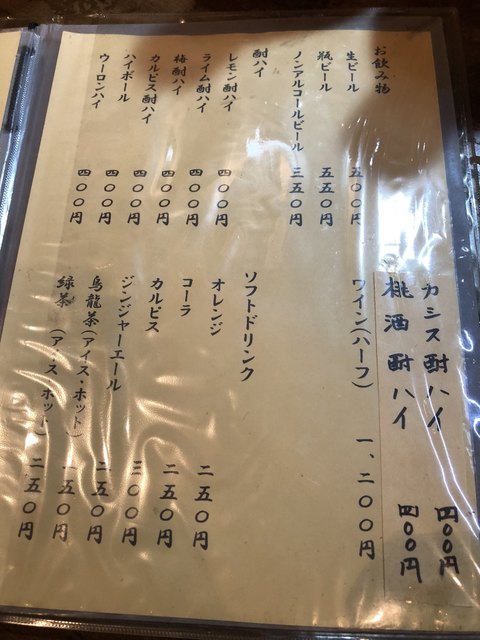 お飲み物
生ビール 五〇〇円
瓶ビール 五五〇円
ノンアルコールビール 三五〇円
酎ハイ
レモン酎ハイ 四〇〇円
ライム酎ハイ 四〇〇円
梅酎ハイ 四〇〇円
カルピス酎ハイ 四〇〇円
ハイボール 四〇〇円
ウーロンハイ 四〇〇円
カシス酎ハイ 四〇〇円
桃酒酎ハイ 四〇〇円
ワイン(ハーフ) 一、二〇〇円
ソフトドリンク
オレンジ 二五〇円
コーラ 二五〇円
カルピス 三〇〇円
ジンジャーエール 二五〇円
烏龍茶(アイス・ホット)
緑茶(アイス・ホット) 二五〇円